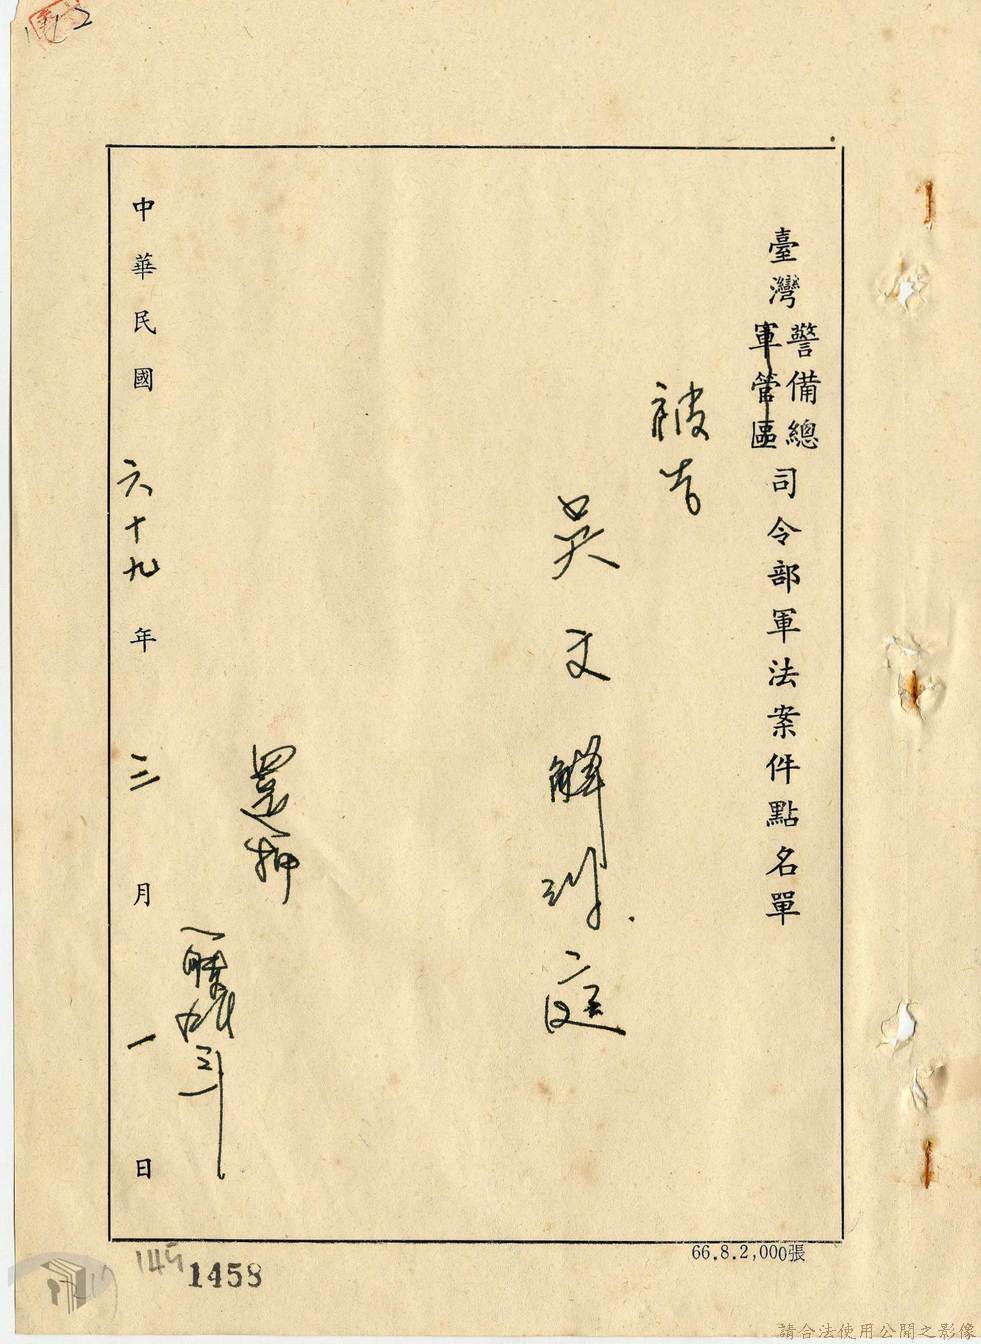 臺灣警備總軍管區司令部軍法案件點名單
被告
吳文 解到庭
還押
中華民國六十九年三月一日
66.8.2,000張
1458
請合法使用公開之影像